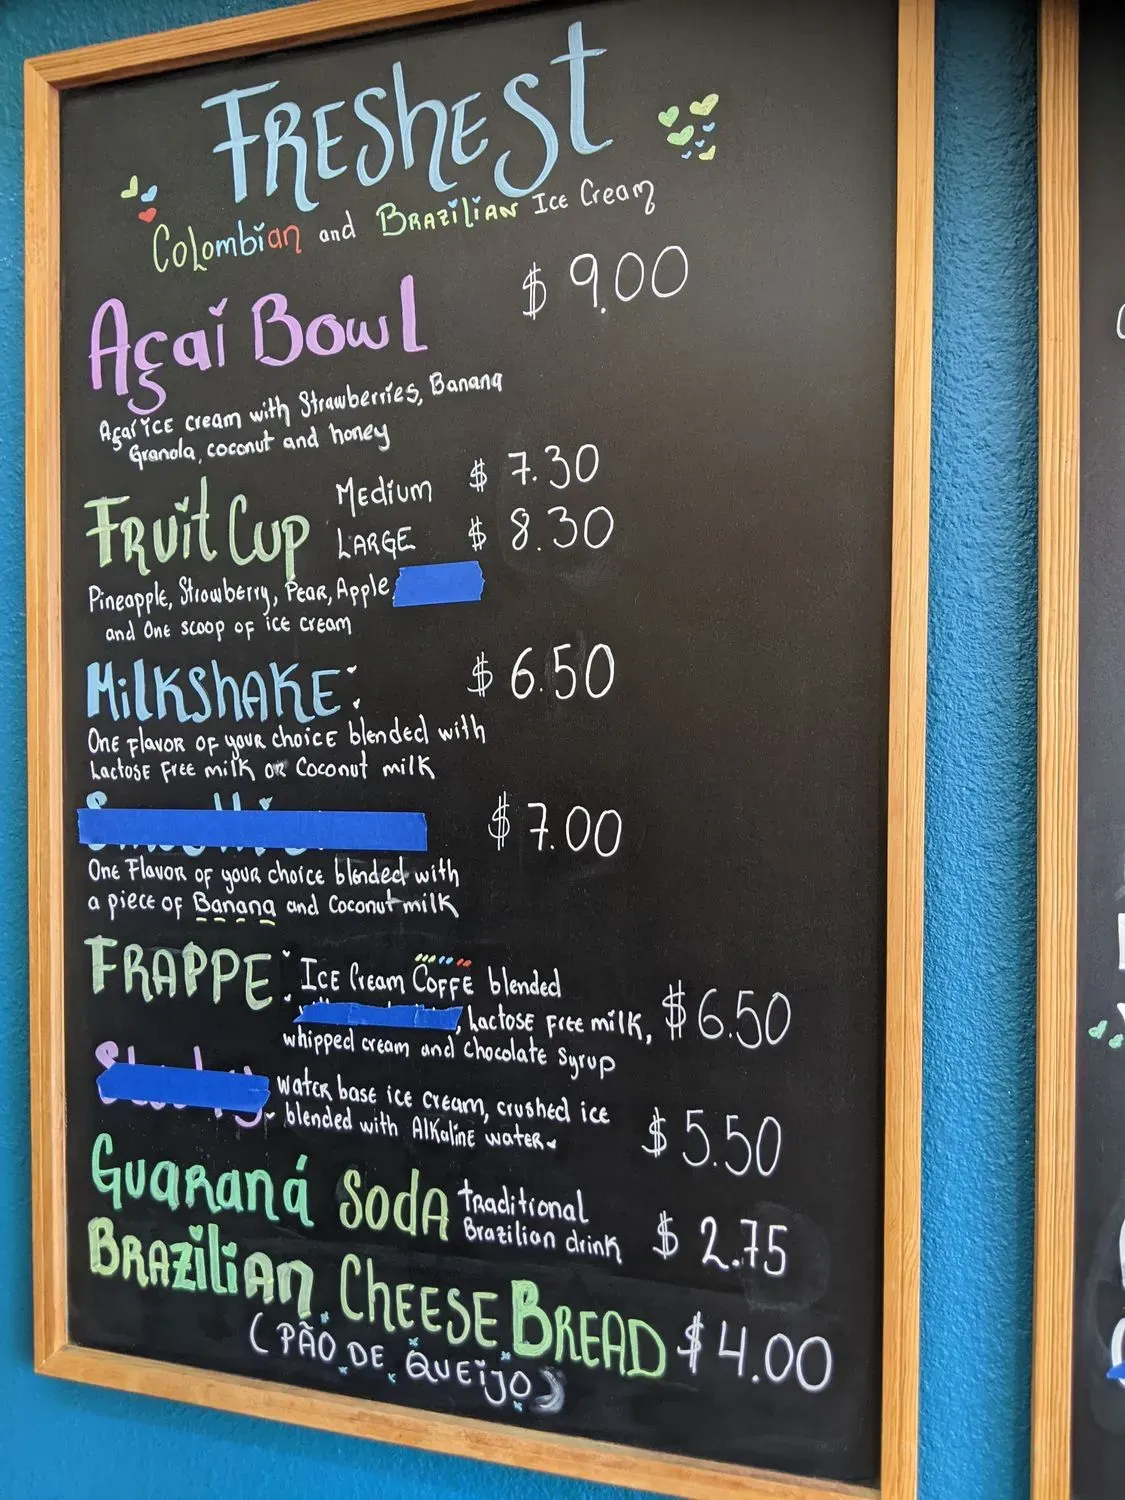 FRESHEST
Colombian and BRAZILIAN Ice Cream
Açaí Bowl $ 9.00
Açaí ICE cream with Strawberries, Banana
Granola, coconut and honey
FRuit Cup MEdium $ 7.30
LARGE $ 8.30
Pineapple, Strowberry, PEAR, Apple,
and One scoop OF ice cream
MilKShAKE: $ 6.50
ONE FlavoR OF youR choicE blended with
LactosE FREE milK OR Coconut milK
$ 7.00
ONE FlavoR OF youR choicE blended with
a piece OF Banana and Coconut milK
FRAPPE: ICE Cream COFFE blended
, LactosE FREE milK, $ 6.50
whipped cream and chocolate syrup
watER base ice cream, crushed ice
blended with AlKalinE watER $ 5.50
Guaraná SodA traditional
Brazilian drink $ 2.75
BRAZiliAn ChEESE BREAD $ 4.00
(PÃO DE QUEijO)